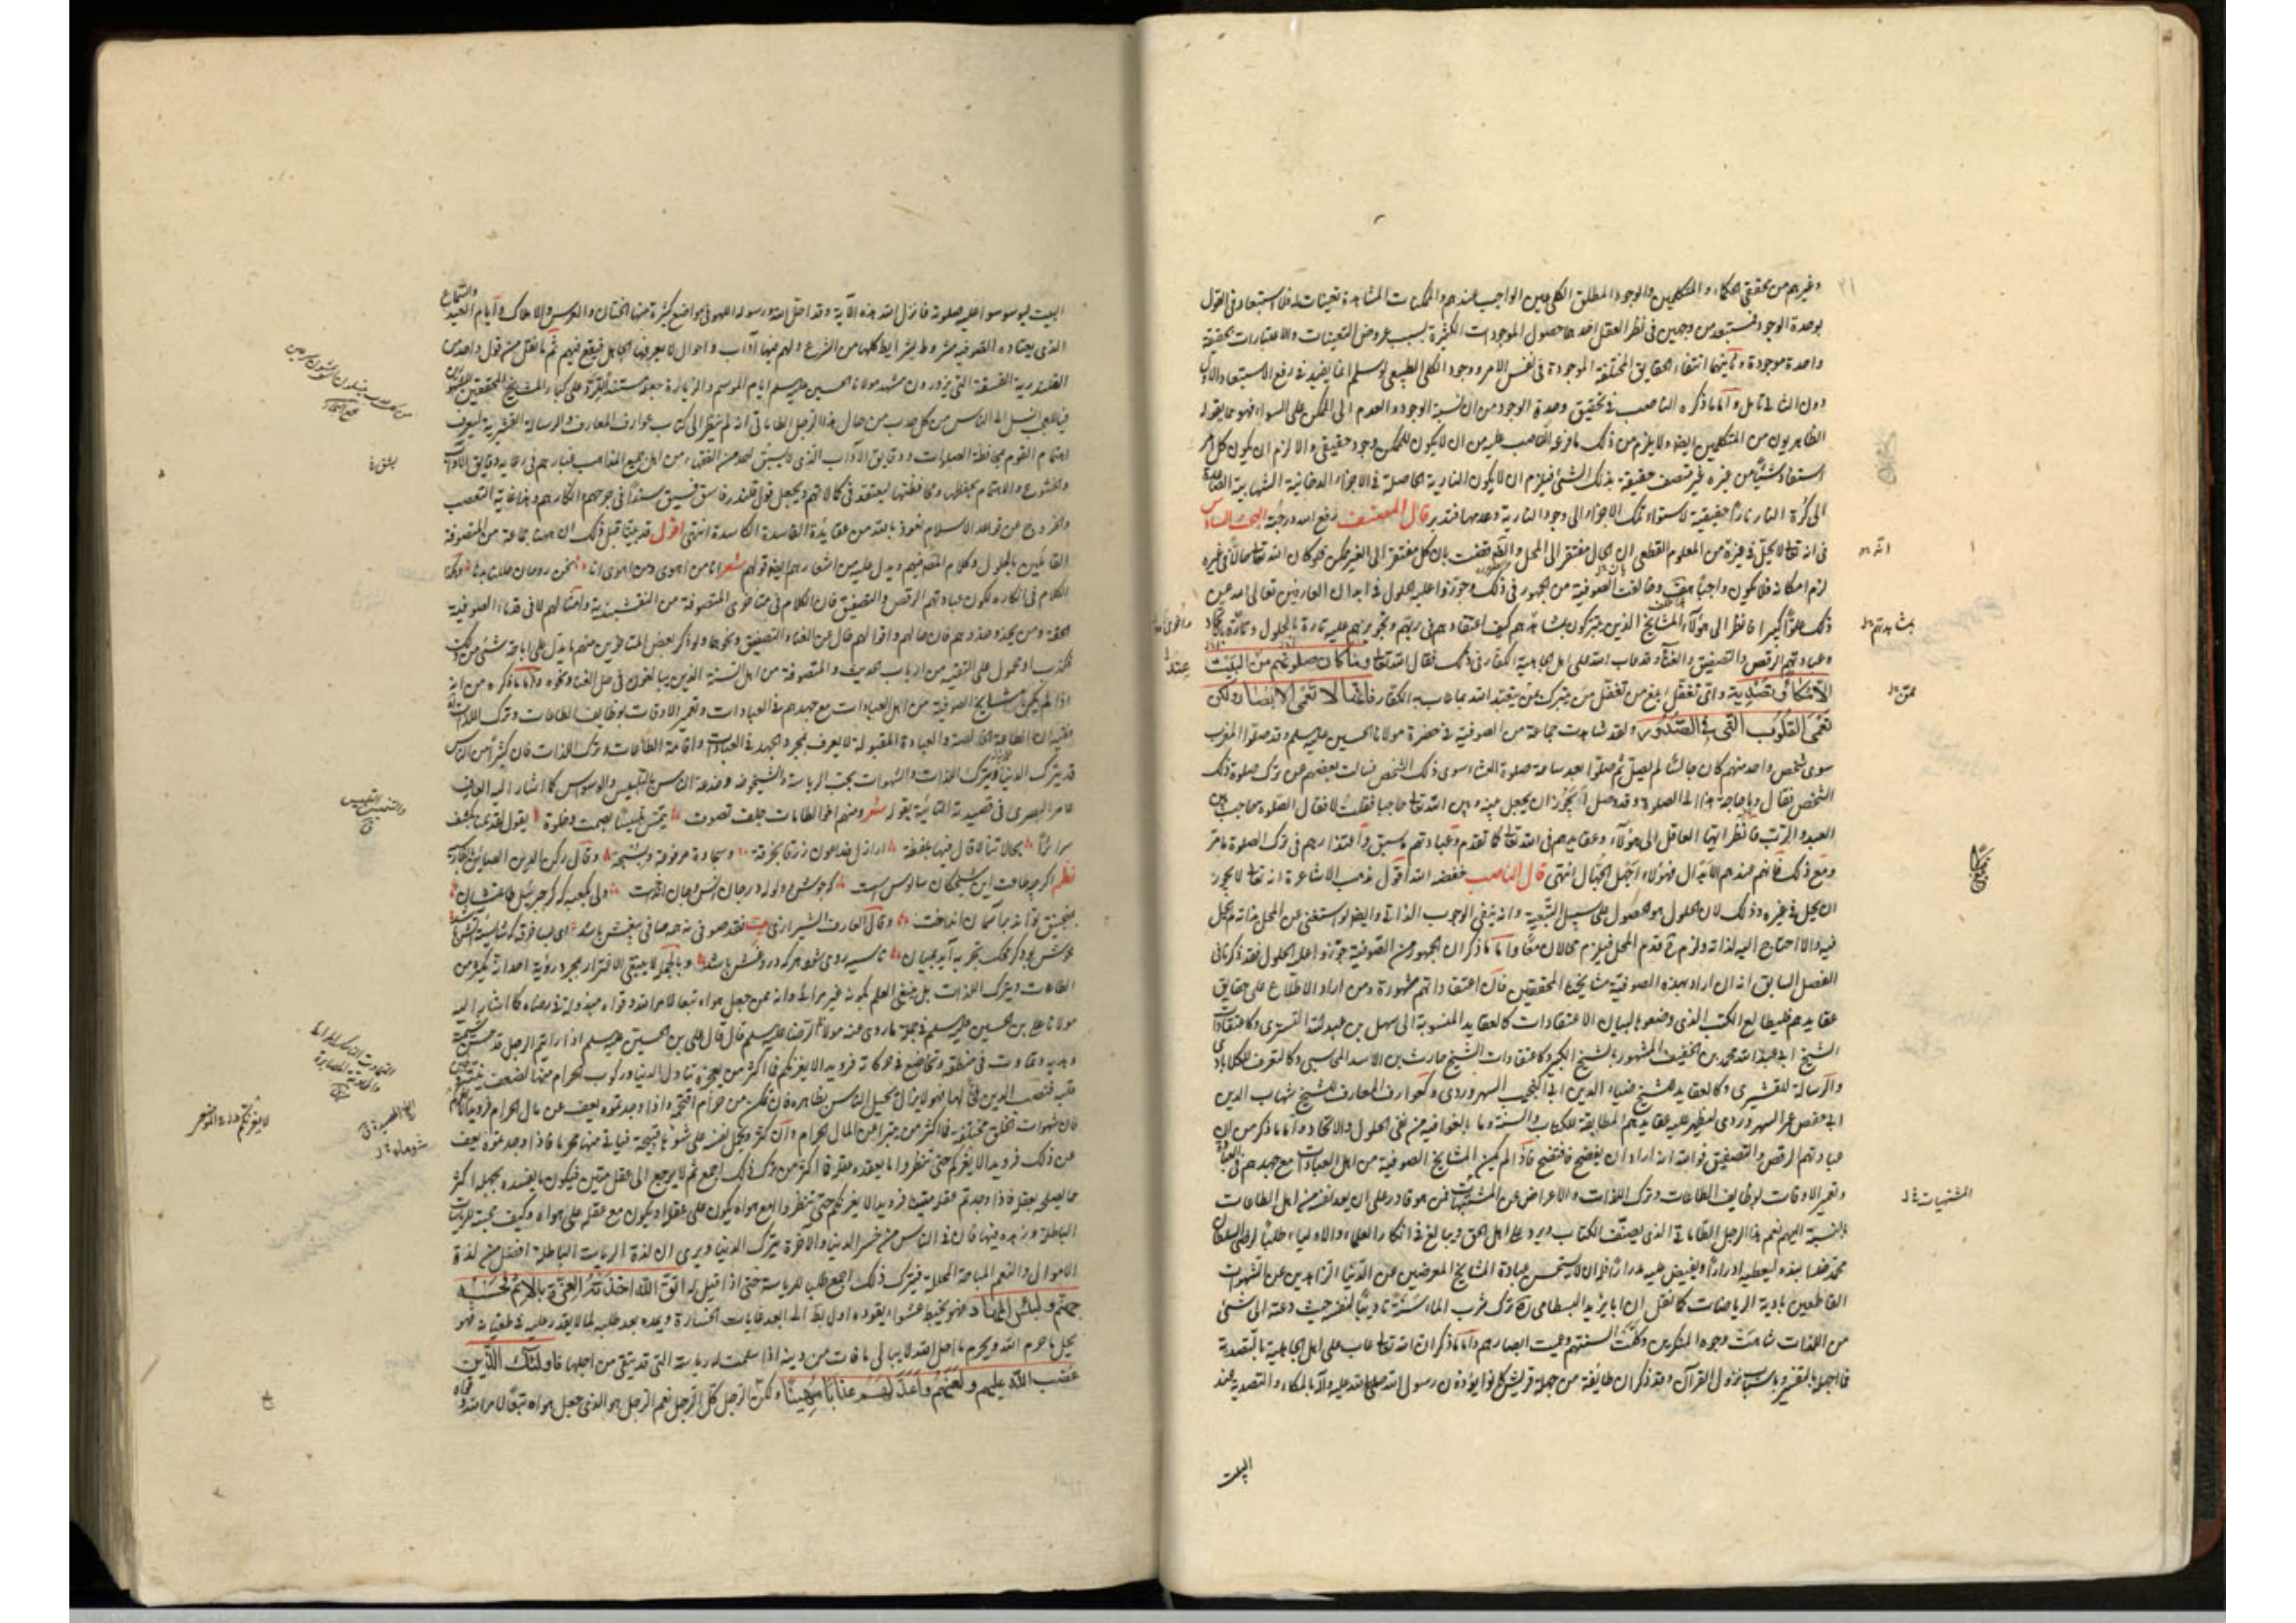 وغيرهم من محققي الحكماء والمتكلمين والوجود المطلق الكلي عين الواجب عندهم والممكنات المشاهدة تعينات له فلا استبعاد في القول
بوحدة الوجود المستبعد من وجهين في نظر العقل احدهما حصول الموجودات الكثيرة بسبب عروض التعينات والاعتبارات لحقيقة
واحدة موجودة وثانيهما انتفاء الحقايق المختلفة الموجودة في نفس الامر ووجود الكلي الطبيعي لو سلم انما يفيد في رفع الاستبعاد الاول
دون الثاني تامل واما ما ذكره الناصب في تحقيق وحدة الوجود من ان نسبة الوجود والعدم الى الممكن على السواء فهو مما يقوله
الظاهريون من المتكلمين ايضا ولا يلزم من ذلك ما فرعه الناصب عليه من ان لا يكون للممكن وجود حقيقي والا لزم ان يكون كل امر
استفاد شيئا من غيره غير متصف حقيقة بذلك الشيء فيلزم ان لا يكون النارية الحاصلة في الاجزاء الدخانية الشهابية الصاعدة
الى كرة النار نارا حقيقية لاستواء تلك الاجزاء الى وجود النارية وعدمها فتدبر قال المصنف رفع الله درجته البحث السادس
في انه تعالى لا يحل في غيره من المعلوم القطعي ان الحال مفتقر الى المحل والضرورة قضت بان كل مفتقر الى الغير ممكن فلو كان الله تعالى حالا في غيره
لزم امكانه فلا يكون واجبا هف وخالفت الصوفية من الجمهور في ذلك وجوزوا عليه الحلول في ابدان العارفين تعالى الله عن
ذلك علوا كبيرا فانظر الى هؤلاء المشايخ الذين يتبركون بمشاهدهم كيف اعتقادهم في ربهم وتجويزهم عليه تارة الحلول وتارة الاتحاد
وعبادتهم الرقص والتصفيق والغناء وقد عاب الله على اهل الجاهلية الكفار في ذلك فقال الله تعالى وما كان صلوتهم عند البيت
الا مكاء وتصدية واي تغفل ابلغ من تغفل من يتبرك بمن يتعبد الله بما عاب به الكفار فانها لا تعمى الابصار ولكن
تعمى القلوب التي في الصدور ولقد شاهدت جماعة من الصوفية في حضرة مولانا الحسين عليه السلام وقد صلوا المغرب
سوى شخص واحد منهم كان جالسا لم يصل ثم صلوا بعد ساعة صلوة العشاء سوى ذلك الشخص فسالت بعضهم عن ترك صلوة ذلك
الشخص فقال وما حاجة هذا الى الصلوة وقد وصل ايجوز ان يجعل بينه وبين الله تعالى حاجبا فقلت لا فقال الصلوة حاجب بين
العبد والرب فانظر ايها العاقل الى هؤلاء وعقايدهم في الله تعالى كما تقدم وعبادتهم ما سبق واعتذارهم في ترك الصلوة ما مر
ومع ذلك فانهم عندهم الابدال فهؤلاء اجهل الجهال انتهى قال الناصب خفضه الله اقول ذهب الاشاعرة انه تعالى لا يجوز
ان يحل في غيره وذلك لان الحلول هو الحصول على سبيل التبعية وانه ينفي الوجوب الذاتي وايضا لو استغنى عن المحل لذاته لم يحل
فيه والا احتاج اليه لذاته ولزم ح قدم المحل فيلزم محالان معا واما ما ذكر ان الجمهور من الصوفية جوزوا عليه الحلول فقد ذكرنا في
الفصل السابق انه ان اراد بهذه الصوفية مشايخنا المحققين فان اعتقاداتهم مشهورة ومن اراد الاطلاع على حقايق
عقايدهم فليطالع الكتب الذي وضعوها لبيان الاعتقادات كالعقايد المنسوبة الى سهل بن عبد الله التستري وكاعتقادات
الشيخ ابي عبد الله محمد بن الخفيف المشهور بالشيخ الكبير وكاعتقادات الشيخ حارث بن الاسد المحاسبي وكالتعرف للكلابادي
والرسالة للقشيري وكالعقايد للشيخ ضياء الدين ابي النجيب السهروردي وكعوارف المعارف للشيخ شهاب الدين
ابي حفص عمر السهروردي ليظهر عليه عقايدهم المطابقة للكتاب والسنة وما بالغوا فيه من نفي الحلول والاتحاد واما ما ذكر من ان
عبادتهم الرقص والتصفيق فوالله انه اراد ان يفضح فافتضح فاذا لم يكن المشايخ الصوفية من اهل العبادات مع جهدهم في العبادة
وتعمير الاوقات بوظايف الطاعات وترك اللذات والاعراض عن المشتهيات فمن هو قادر على ان يعد نفسه من اهل الطاعات
بالنسبة اليهم نعم هذا الرجل الطاماتي الذي يصنف الكتاب ويرد على اهل الحق ويبالغ في انكار العلماء والاولياء طلبا لرضى السلطان
محمد خدابنده ليعطيه ادرارا ويفيض عليه مدرارا فله ان لا يستحسن عبادة المشايخ المعرضين عن الدنيا الزاهدين عن الشهوات
القاطعين بادية الرياضات كما نقل ان ابا يزيد البسطامي ترك شرب الماء سنة تاديبا لنفسه حيث دعته الى شيء
من اللذات شاهت وجوه المنكرين وكلت السنتهم وعميت ابصارهم واما ما ذكر ان الله تعالى عاب على اهل الجاهلية بالتصدية
فما اجهله بالتفسير وباسباب نزول القرآن وقد ذكر ان طايفة من جهلة قريش كانوا يؤذون رسول الله صلى الله عليه وآله بالمكاء والتصدية عند
البيت
المشتهيات خ ل
البيت ليوسوسوا عليه صلوته فانزل الله هذه الآية وقد احل الله ورسوله اللهو في مواضع كثيرة منها الختان والعرس والاملاك وايام العيد والسماع
الذي يعتاده الصوفية مشروط بشرايط كلها من الشرع ولهم فيها آداب واحوال لا يعرفها الجاهل فيقع فيهم ثم ما نقل من قول واحد من
القلندرية الفسقة التي يزورون مشهد مولانا الحسين عليه السلام ايام الموسم والزيارة جعله مستندا للرد على كبار المشايخ المحققين المشهورين
فيا للعجب انسل الى الناس من كل حدب من حال هذا الرجل الطاماتي انه لم ينظر الى كتاب عوارف المعارف والرسالة القشيرية ليعرف
اهتمام القوم بمحافظة الصلوات ودقايق الآداب الذي لا يشق احد من الفقهاء من اهل جميع المذاهب غبارهم في رعاية دقايق الآداب
والخشوع والاهتمام بحفظها ومحافظتها ليعتقد في كمالاتهم ويجعل قول قلندر فاسق فسيق سندا في جرحهم وانكارهم وهذا غاية التعصب
والخروج عن قواعد الاسلام نعوذ بالله من عقايده الفاسدة الكاسدة انتهى اقول قد بينا قبل ذلك ان ههنا جماعة من المتصوفة
القائلين بالحلول وكلام المصنف فيهم ويدل عليه من اشعارهم ايضا قولهم شعر انا من اهوى ومن اهوى انا نحن روحان حللنا بدنا وكذا
الكلام في انكاره لكون عبادتهم الرقص والتصفيق فان الكلام في متاخري المتصوفة من النقشبندية وامثالهم لا في قدماء الصوفية
الحقة ومن يحذو حذوهم فان حالهم واقوالهم خال عن الغناء والتصفيق ونحوها ولو ذكر بعض المتاخرين منهم ما يدل على اباحة شيء من ذلك
فكذب او محمول على التقية من ارباب الحديث والمتصوفة من اهل السنة الذين يبالغون في حل الغناء ونحوه واما ما ذكره من انه
اذا لم يكن مشايخ الصوفية من اهل العبادات مع جهدهم في العبادات وتعمير الاوقات بوظايف الطاعات وترك اللذات
ففيه ان الطاعة الخالصة والعبادة المقبولة لا يعرف بمجرد الجهد في العبادات واقامة الطاعات وترك اللذات فان كثيرا من الناس
قد يترك الدنيا ويترك اللذات والشهوات بحب الرياسة والشيخوخة وخدعة الناس بالتلبيس والوسواس كما اشار اليه العارف
عامر البصري في قصيدته التائية بقوله شعر ومنهم اخا لطامات جلف تصوت يتمتس تلبيسا بصمت وخلوة يقول لقد نلنا بكشف
سرائرا محالاتنا لا قال فيها بلفظة اراذل خداعون زرقا بخرقة وسجادة مرفوعة وبسبحة وقال ركن الدين الصائن
نظم اكر چه طاعت اين شيخكان سالوس است كه جوش و ولوله در جان انس وجان انداخت ولى بكعبه كه كر جبرئيل طاعتشان
بمنجنيق تواند بآسمان انداخت وقال العارف الشيرازي بيت نقد صوفى نه همه صافى بيغش باشد اى بسا خرقه كه شايسته آتش باشد
خوش بود كر محك تجربه آيد بميان تا سيه روى شود هر كه دروغش باشد وبالجملة لا ينبغي الاغترار بمجرد رؤية احد انه يكثر من
الطاعات ويترك اللذات بل ينبغي العلم بكونه غير مرائي وانه ممن جعل هواه تبعا لامر الله وقواه مبذولة في رضاه كما اشار اليه
مولانا علي بن الحسين عليه السلام في جملة ما روي عنه مولانا الرضا عليه السلام قال قال علي بن الحسين عليه السلام اذا رايتم الرجل قد حسن سمته
وهديه وتماوت في منطقه وتخاضع في حركاته فرويدا لا يغرنكم فما اكثر من يعجزه تناول الدنيا وركوب الحرام منها لضعف نيته
قلبه فنصب الدين فخا لها فهو لا يزال يختل الناس بظاهره فان تمكن من حرام اقتحمه واذا وجدتموه يعف عن مال الحرام فرويدا
فان شهوات الخلق مختلفة فما اكثر من ينبو عن المال الحرام وان كثر ويحمل نفسه على شوهاء قبيحة فياتي منها محرما فاذا وجدتموه يعف
عن ذلك فرويدا لا يغركم حتى تنظروا ما يعقده عقله فما اكثر من ترك ذلك اجمع ثم لا يرجع الى عقل متين فيكون ما يفسده بجهله اكثر
مما يصلحه بعقله فاذا وجدتم عقله متينا فرويدا لا يغرنكم حتى تنظروا امع هواه يكون على عقله او يكون مع عقله على هواه وكيف محبته للرياسات
الباطلة وزهده فيها فان في الناس من خسر الدنيا والآخرة بترك الدنيا ويرى ان لذة الرياسة الباطلة افضل من لذة
الاموال والنعم المباحة المحللة فيترك ذلك اجمع طلبا للرياسة حتى اذا قيل له اتق الله اخذته العزة بالاثم فحسبه
جهنم ولبئس المهاد فهو يخبط عشواء يقوده اول باطل الى ابعد غايات الخسارة ويمده بعد طلبه لما لا يقدر عليه في طغيانه فهو
يحل ما حرم الله ويحرم ما احل الله لا يبالي ما فات من دينه اذا سلمت له رياسته التي قد يتقي من اجلها فاولئك الذين
غضب الله عليهم ولعنهم واعد لهم عذابا مهينا ولكن الرجل كل الرجل نعم الرجل هو الذي جعل هواه تبعا لامر الله وقواه